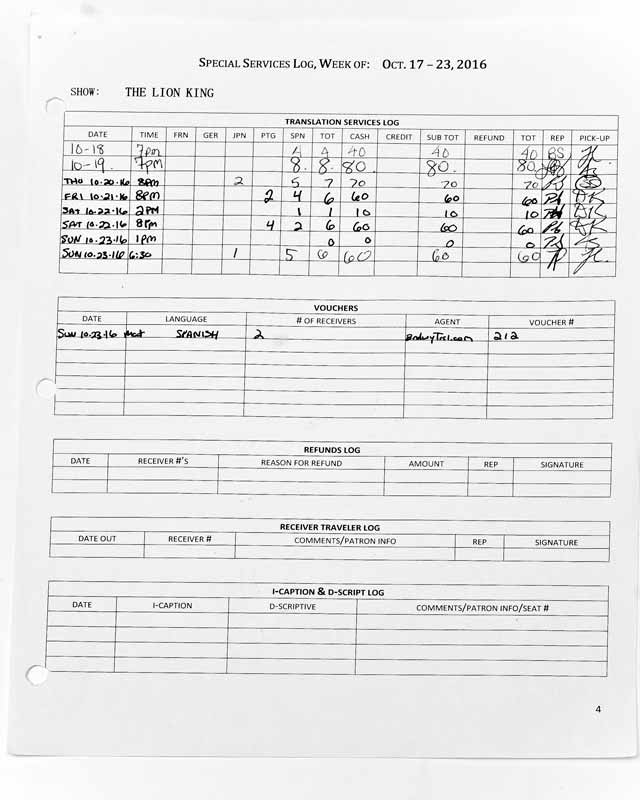 SPECIAL SERVICES LOG, WEEK OF: OCT. 17 – 23, 2016
SHOW: THE LION KING
TRANSLATION SERVICES LOG
DATE TIME FRN GER JPN PTG SPN TOT CASH CREDIT SUB TOT REFUND TOT REP PICK-UP
10-18 7pm 4 4 40 40 40 BS
10-19. 7pm 8. 8. 80. 80. 80
THU 10.20.16 8PM 2 5 7 70 70 70
FRI 10.21.16 8PM 2 4 6 60 60 60 DK
SAT 10.22.16 2PM 1 1 10 10 10 DK
SAT 10.22.16 8PM 4 2 6 60 60 60 DK
SUN 10.23.16 1PM 0 0 0 0
SUN 10.23.16 6:30 1 5 6 60 60 60
VOUCHERS
DATE LANGUAGE # OF RECEIVERS AGENT VOUCHER #
SUN 10.23.16 mat SPANISH 2 212
REFUNDS LOG
DATE RECEIVER #'S REASON FOR REFUND AMOUNT REP SIGNATURE
RECEIVER TRAVELER LOG
DATE OUT RECEIVER # COMMENTS/PATRON INFO REP SIGNATURE
I-CAPTION & D-SCRIPT LOG
DATE I-CAPTION D-SCRIPTIVE COMMENTS/PATRON INFO/SEAT #
4